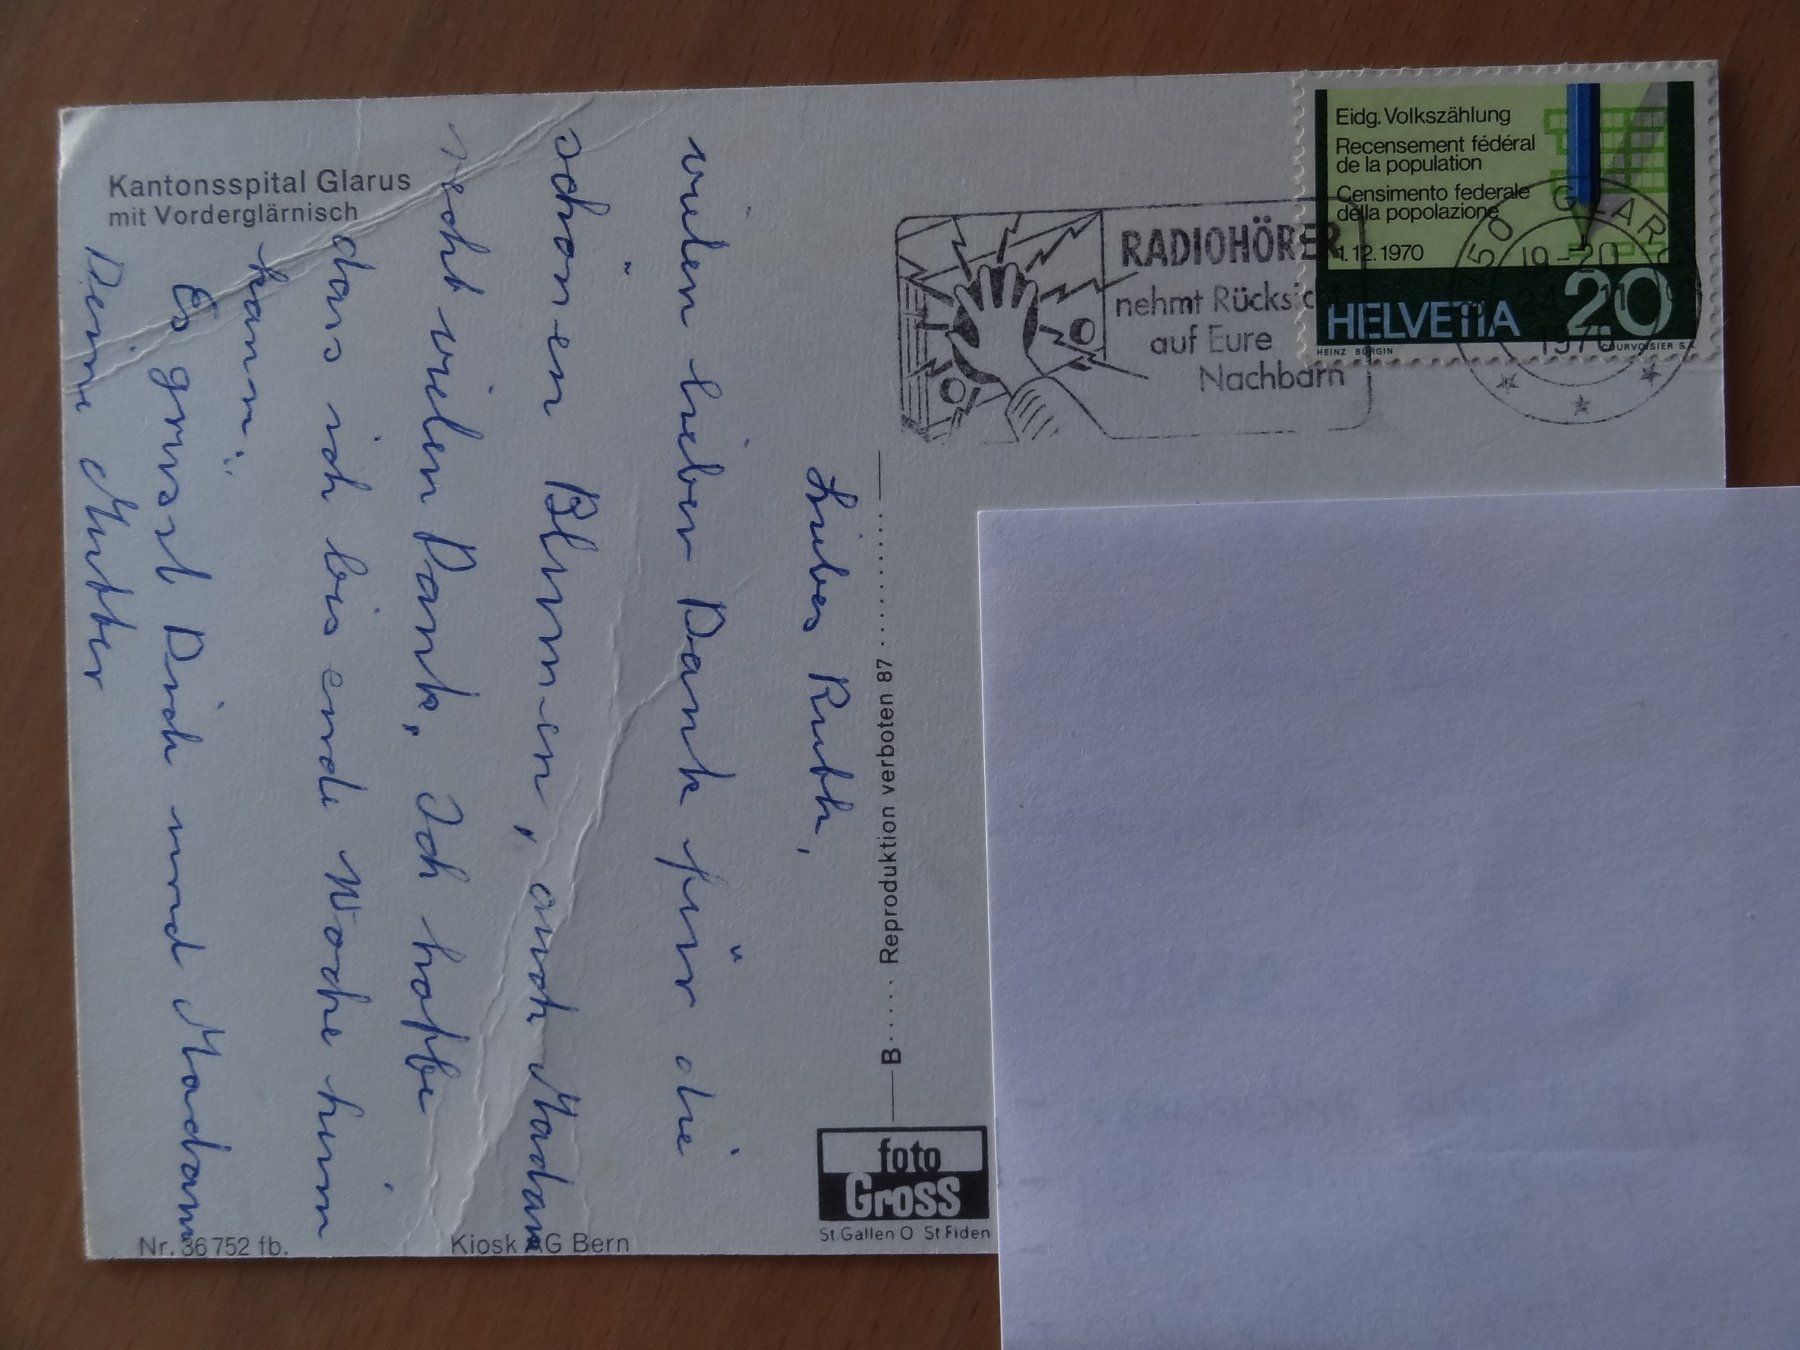 Kantonsspital Glarus
mit Vorderglärnisch
Liebes Ruth,
vielen lieben Dank für die
schönen Blumen, auch Madam
recht vielen Dank, Ich hoffe
dass ich bis ende Woche heim
kann.
Es grüsst Dich und Madam
Deine Mutter
Nr. 36752 fb.
Kiosk AG Bern
B..... Reproduktion verboten 87..........
foto
Gross
St Gallen O St Fiden
RADIOHÖRER
nehmt Rücksicht
auf Eure
Nachbarn
Eidg. Volkszählung
Recensement fédéral
de la population
Censimento federale
della popolazione
1.12.1970
HELVETIA 20
HEINZ BÜRGIN
COURVOISIER S.A.
GLAR
19-20
1970